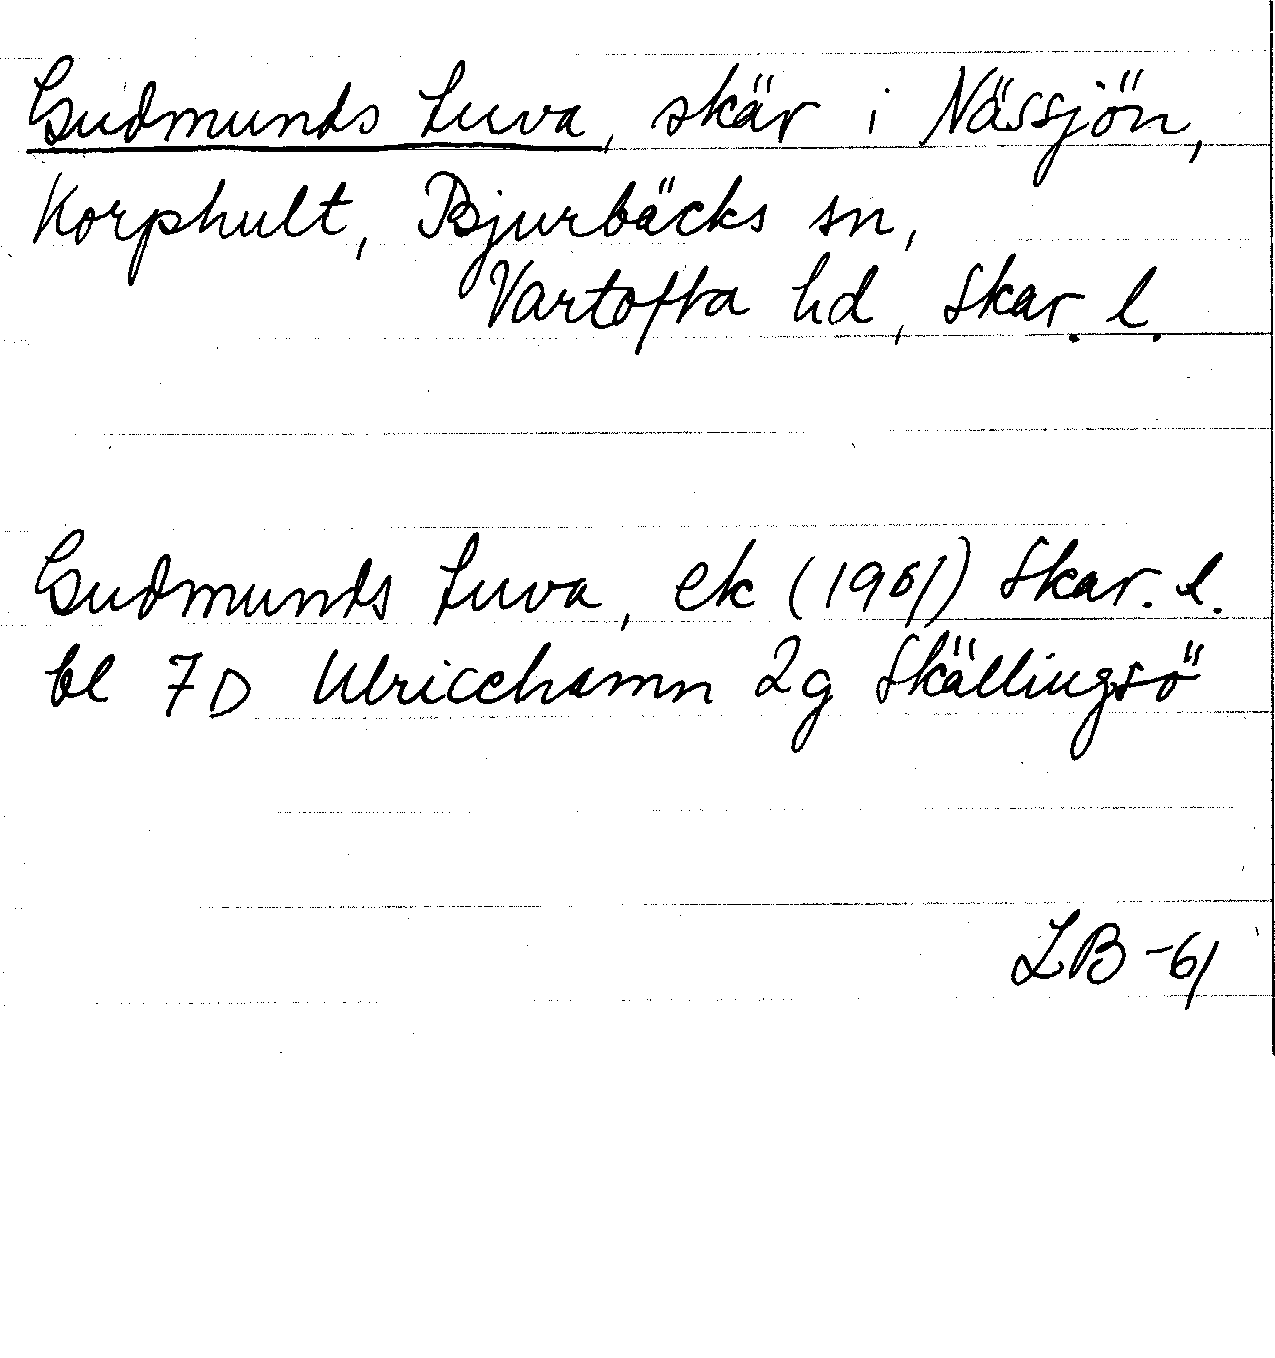 Gudmunds Luva, skär i Nässjön,
Korphult, Bjurbäcks sn,
Vartofta hd, Skar. l.
Gudmunds Luva, ek (1961) Skar. l.
bl 7D Ulricehamn 2g Skällingsö
LB -61